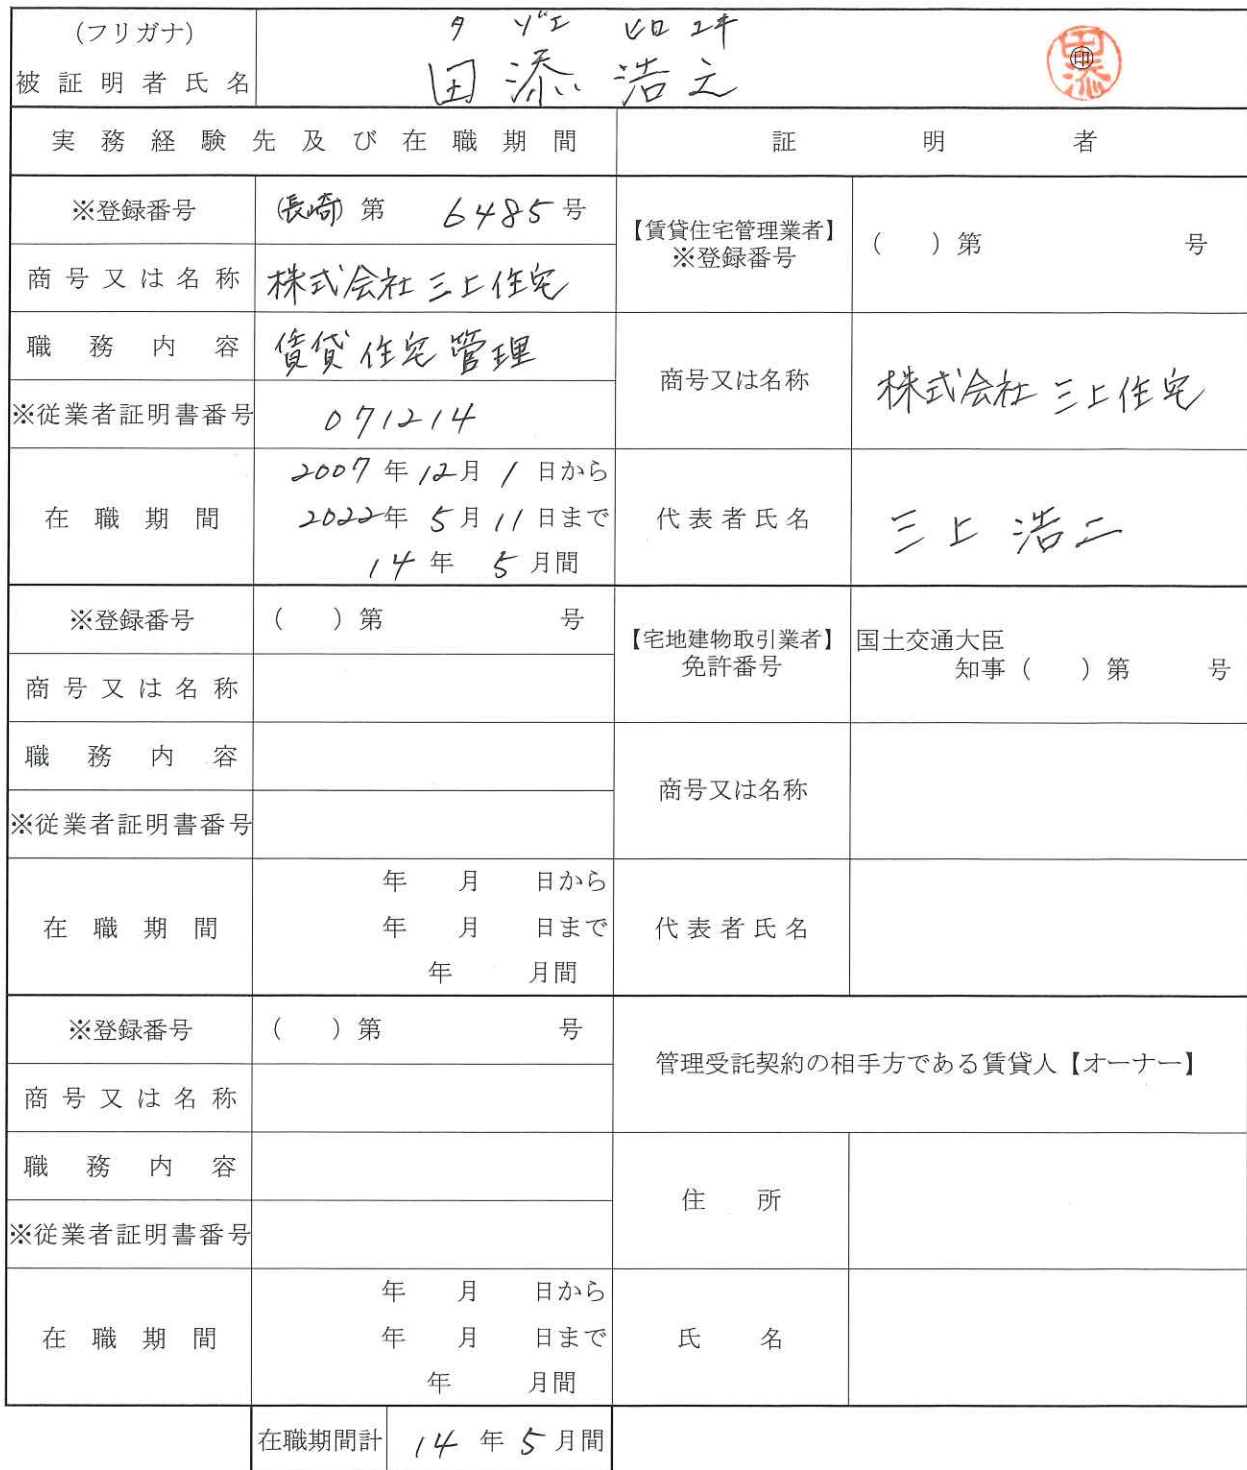 (フリガナ) タ ゾエ ヒロ ユキ
被証明者氏名 田添 浩之 ㊞ 田添
実務経験先及び在職期間 証明者
※登録番号 (長崎) 第 6485 号
商号又は名称 株式会社三上住宅
職務内容 賃貸住宅管理
※従業者証明書番号 071214
在職期間 2007 年 12 月 1 日から
2022 年 5 月 11 日まで
14 年 5 月間
【賃貸住宅管理業者】
※登録番号 ( ) 第 号
商号又は名称 株式会社三上住宅
代表者氏名 三上 浩二
※登録番号 ( ) 第 号
商号又は名称
職務内容
※従業者証明書番号
在職期間 年 月 日から
年 月 日まで
年 月間
【宅地建物取引業者】 国土交通大臣
免許番号 知事 ( ) 第 号
商号又は名称
代表者氏名
※登録番号 ( ) 第 号
商号又は名称
職務内容
※従業者証明書番号
在職期間 年 月 日から
年 月 日まで
年 月間
管理受託契約の相手方である賃貸人【オーナー】
住所
氏名
在職期間計 14 年 5 月間